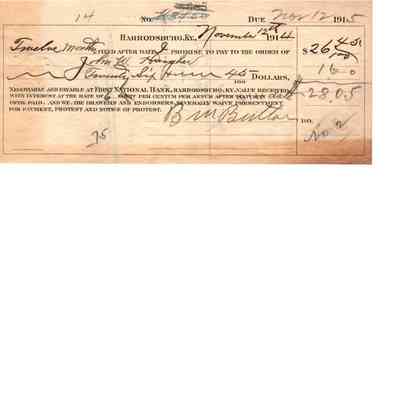 14 No. Due Nov 12 1915
Harrodsburg, Ky. November 12th 1914
Twelve Months fixed after date I promise to pay to the order of $26 45/100
John W. 1 60
Twenty Six 45/100 Dollars,
Negotiable and payable at First National Bank, Harrodsburg, Ky. Value received $28.05
with interest at the rate of 6 per centum per annum after
until paid. and we, the drawers and endorsers, severally waive presentment
for payment, protest and notice of protest.
B M Button No 2
75